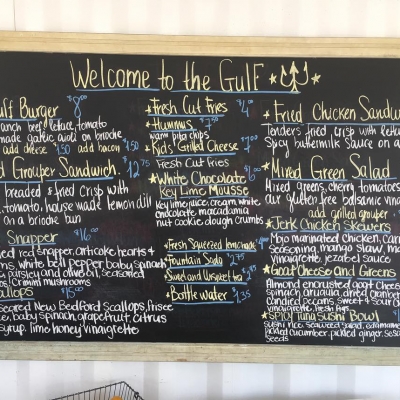 Welcome to the Gulf
Gulf Burger $8.00
ranch beef, lettuce, tomato
made garlic aioli on brioche
add cheese $1.50 add bacon $1.50
Grouper Sandwich $12.75
breaded & fried crisp with
tomato, house made lemon dill
on a brioche bun
Snapper $16.00
red snapper, artichoke hearts &
white bell pepper, baby spinach
parsley and olive oil, seasoned
crimini mushrooms
Scallops
Seared New Bedford Scallops, frisee
baby spinach, grapefruit, citrus
syrup, lime honey vinaigrette
Fresh Cut Fries $4.00
Hummus $7.00
warm pita chips
Kid's Grilled Cheese $7.00
Fresh Cut Fries
White Chocolate
Key Lime Mousse
Key lime juice, cream, white
chocolate, macadamia
nut cookie dough crumbs
Fresh Squeezed Lemonade
Fountain Soda $2.75
Sweet and Unsweet tea $2.85
Bottle water $1.35
Fried Chicken Sandw
Tenders fried crisp with lettu
spicy buttermilk sauce on a
Mixed Green Salad
Mixed greens, cherry tomatoes
our gluten free balsamic vina
add grilled grouper
Jerk Chicken Skewers
Mojo marinated chicken, car
seasoning, mango slaw, ma
vinaigrette, jezabel sauce
Goat Cheese and Greens
Almond encrusted goat chees
spinach, arugula, dried cranber
candied pecans, sweet & sour
vinaigrette, fresh figs
Spicy Tuna Sushi Bowl
sushi rice, seaweed salad, edamame
pickled cucumber, pickled ginger, ses
seeds